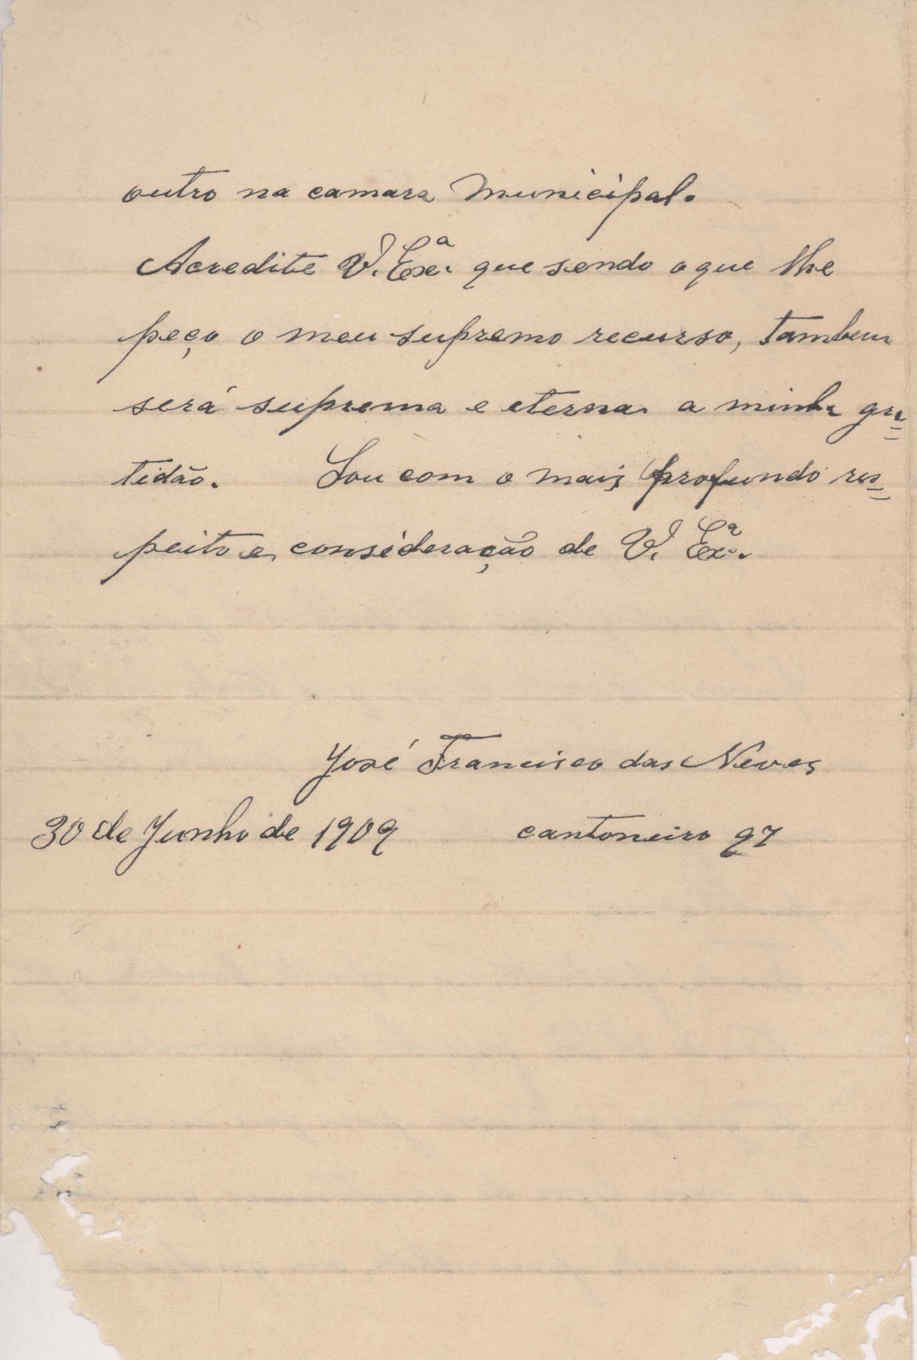 outro na camara Municipal.
Acredite V. Exª. que sendo o que lhe
peço o meu supremo recurso, tambem
será suprema e eterna a minha gra=
tidão. Sou com o mais profundo res=
peito e consideração de V. Exª.
José Francisco das Neves
30 de Junho de 1909 cantoneiro 97